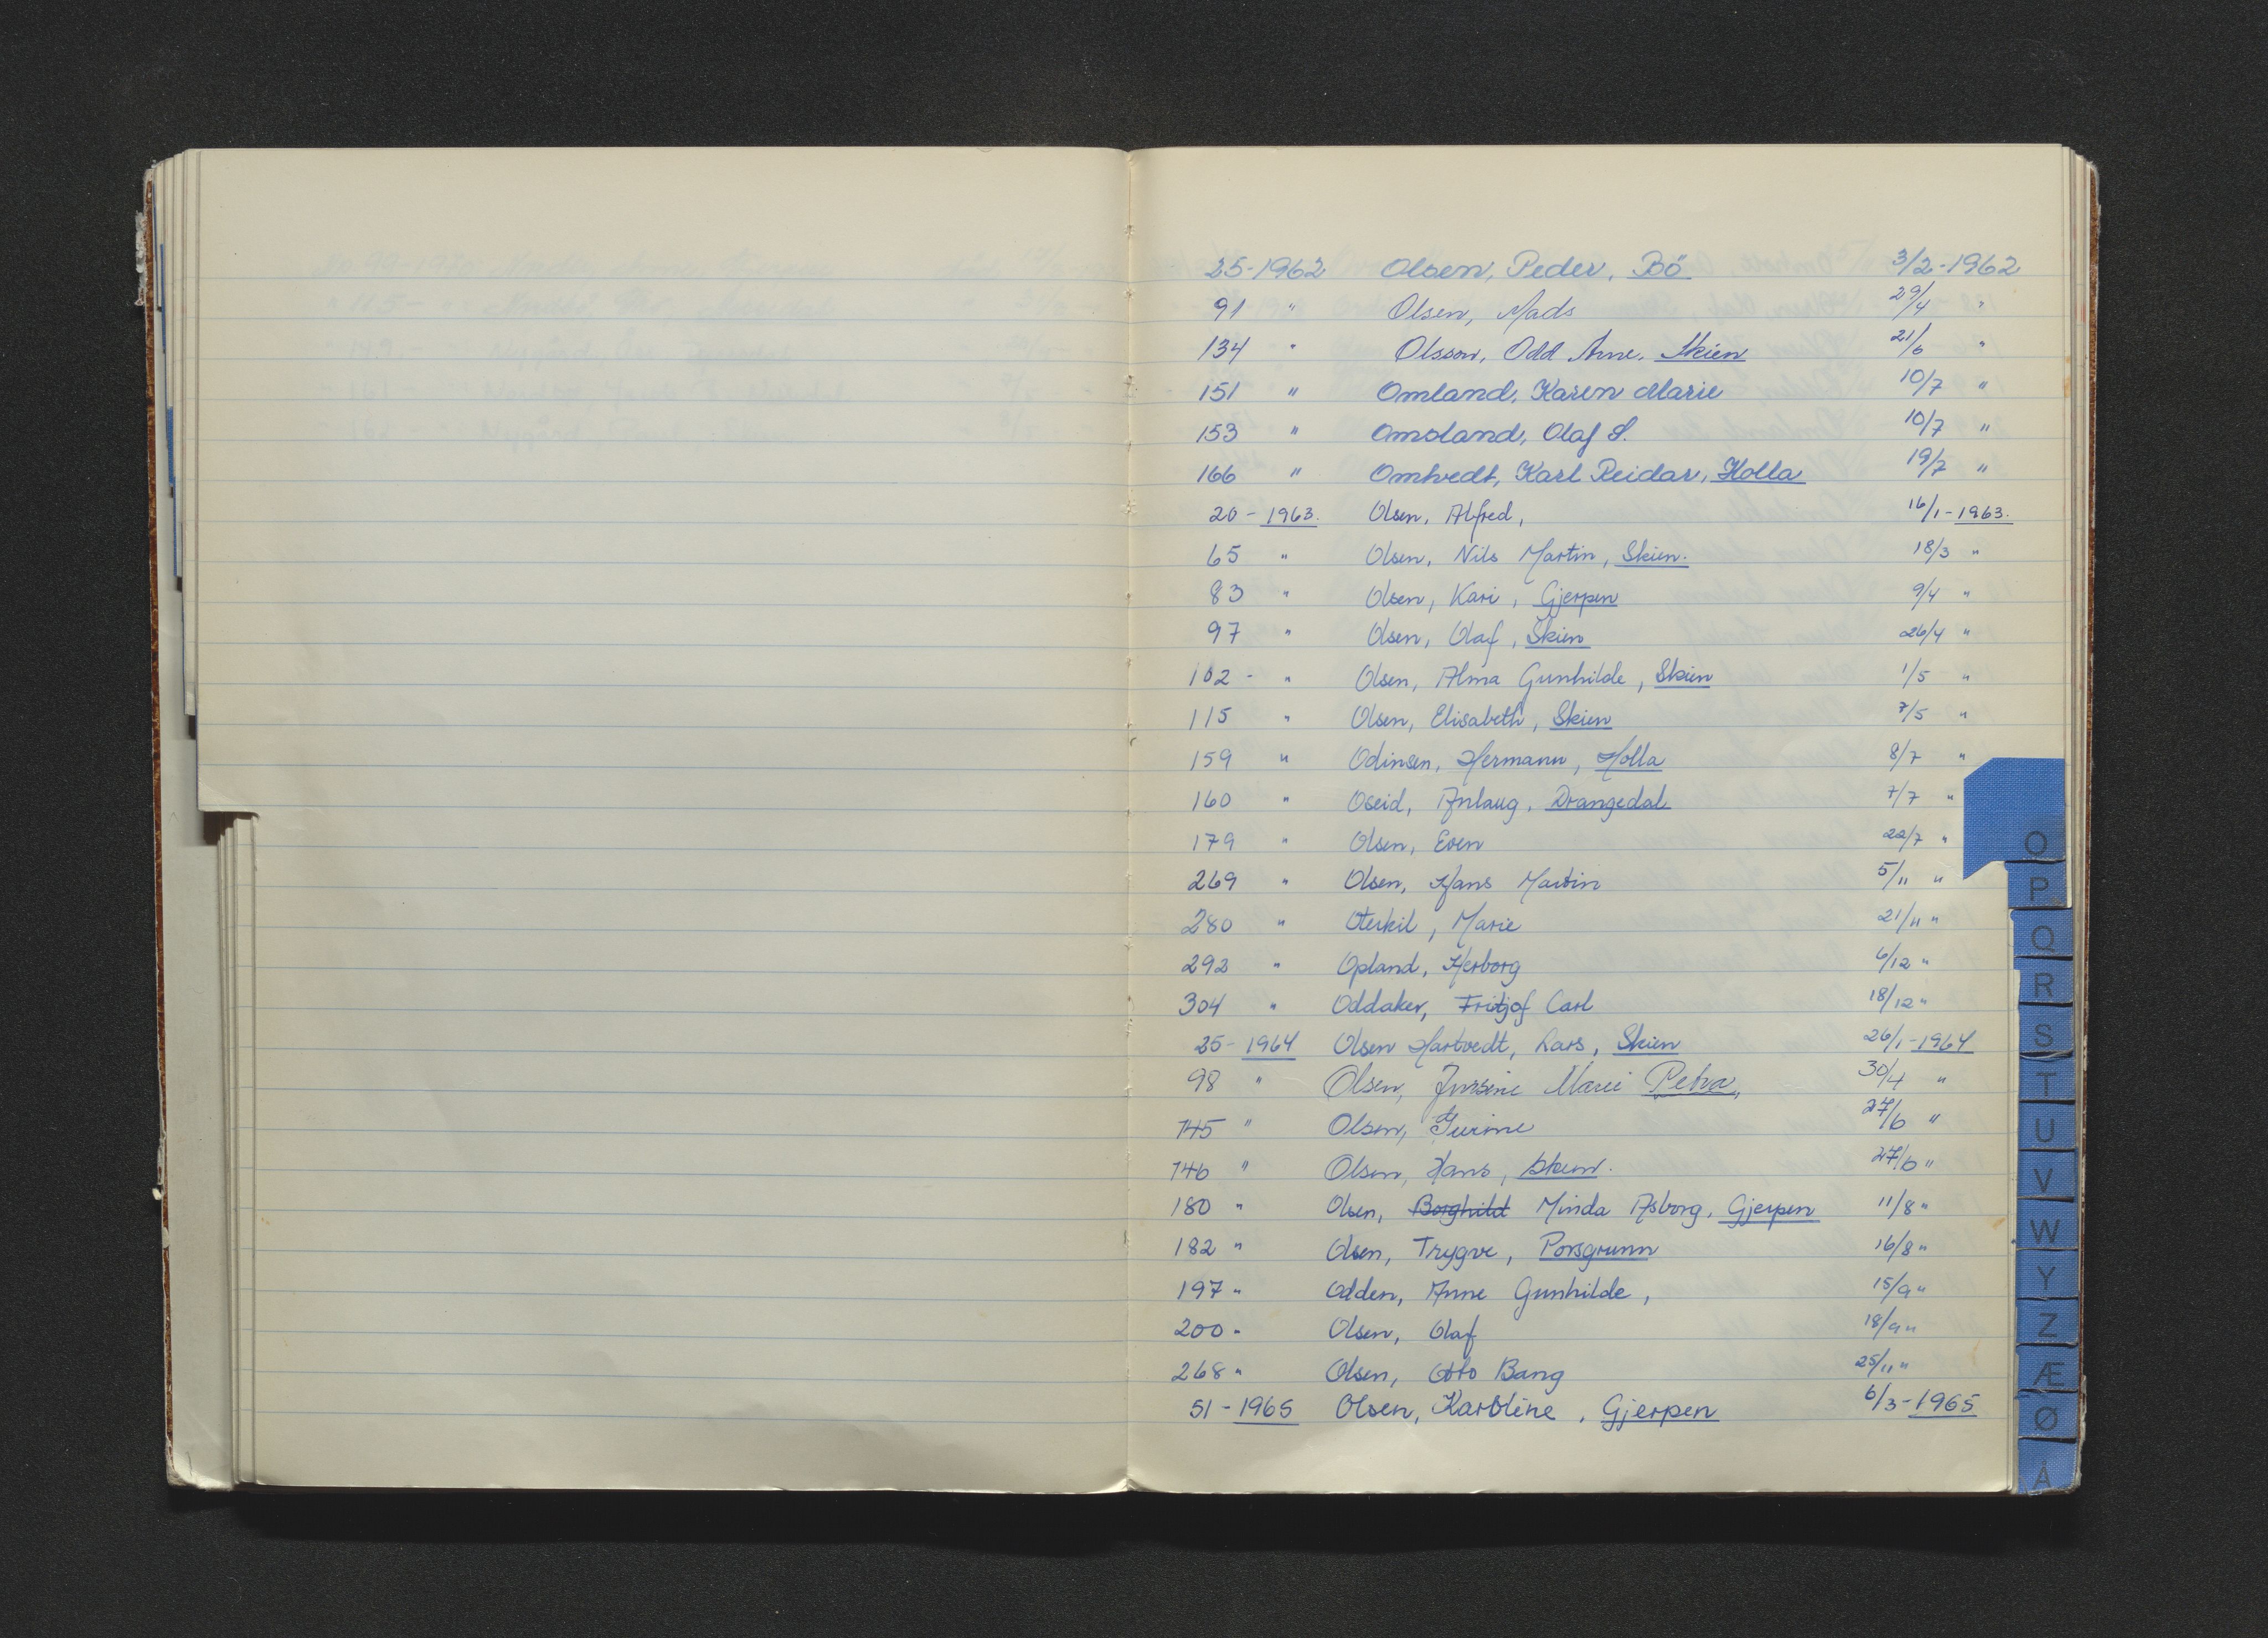 25-1962 Olsen, Peder, Bö 3/2-1962
91 " Olsen, Mads 29/4 "
134 " Olsson, Odd Arne, Skien 21/6 "
151 " Omland, Karen Marie 10/7 "
153 " Omsland, Olaf S. 10/7 "
166 " Omtvedt, Karl Reidar, Holla 19/7 "
20-1963. Olsen, Alfred, 16/1-1963.
65 " Olsen, Nils Martin, Skien. 18/3 "
83 " Olsen, Kari, Gjerpen 9/4 "
97 " Olsen, Olaf, Skien 26/4 "
102 - " Olsen, Alma Gunhilde, Skien 1/5 "
115 " Olsen, Elisabeth, Skien 7/5 "
159 " Odinsen, Hermann, Holla 8/7 "
160 " Oseid, Anlaug, Drangedal 7/7 "
179 " Olsen, Even 22/7 "
269 " Olsen, Hans Martin 5/11 "
280 " Oterkil, Marie 21/11 "
292 " Opland, Herborg 6/12 "
304 " Oddaker, Fridtjof Carl 18/12 "
25-1964 Olsen Hartvedt, Lars, Skien 26/1-1964
98 " Olsen, Marie Petra, 30/4 "
145 " Olsen, 27/6 "
146 " Olsen, Hans, Skien. 27/6 "
180 " Olsen, Borghild Minda Asborg, Gjerpen 11/8 "
182 " Olsen, Trygve, Porsgrunn 16/8 "
197 " Odden, Anne Gunhilde, 15/9 "
200 " Olsen, Olaf 18/9 "
268 " Olsen, Otto Bang 25/11 "
51-1965 Olsen, Karoline, Gjerpen 6/3-1965
O
P
Q
R
S
T
U
V
W
Y
Z
Æ
Ø
Å